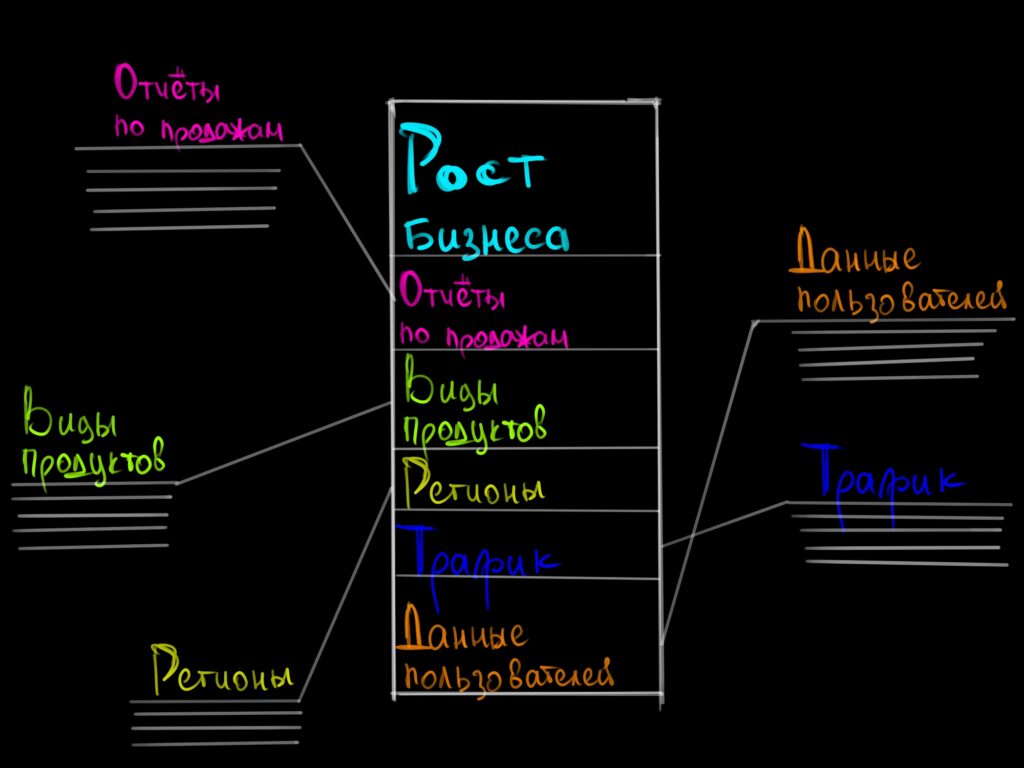 Отчёты
по продажам
Рост
Бизнеса
Отчёты
по продажам
Виды
продуктов
Регионы
Трафик
Данные
пользователей
Виды
продуктов
Регионы
Данные
пользователей
Трафик